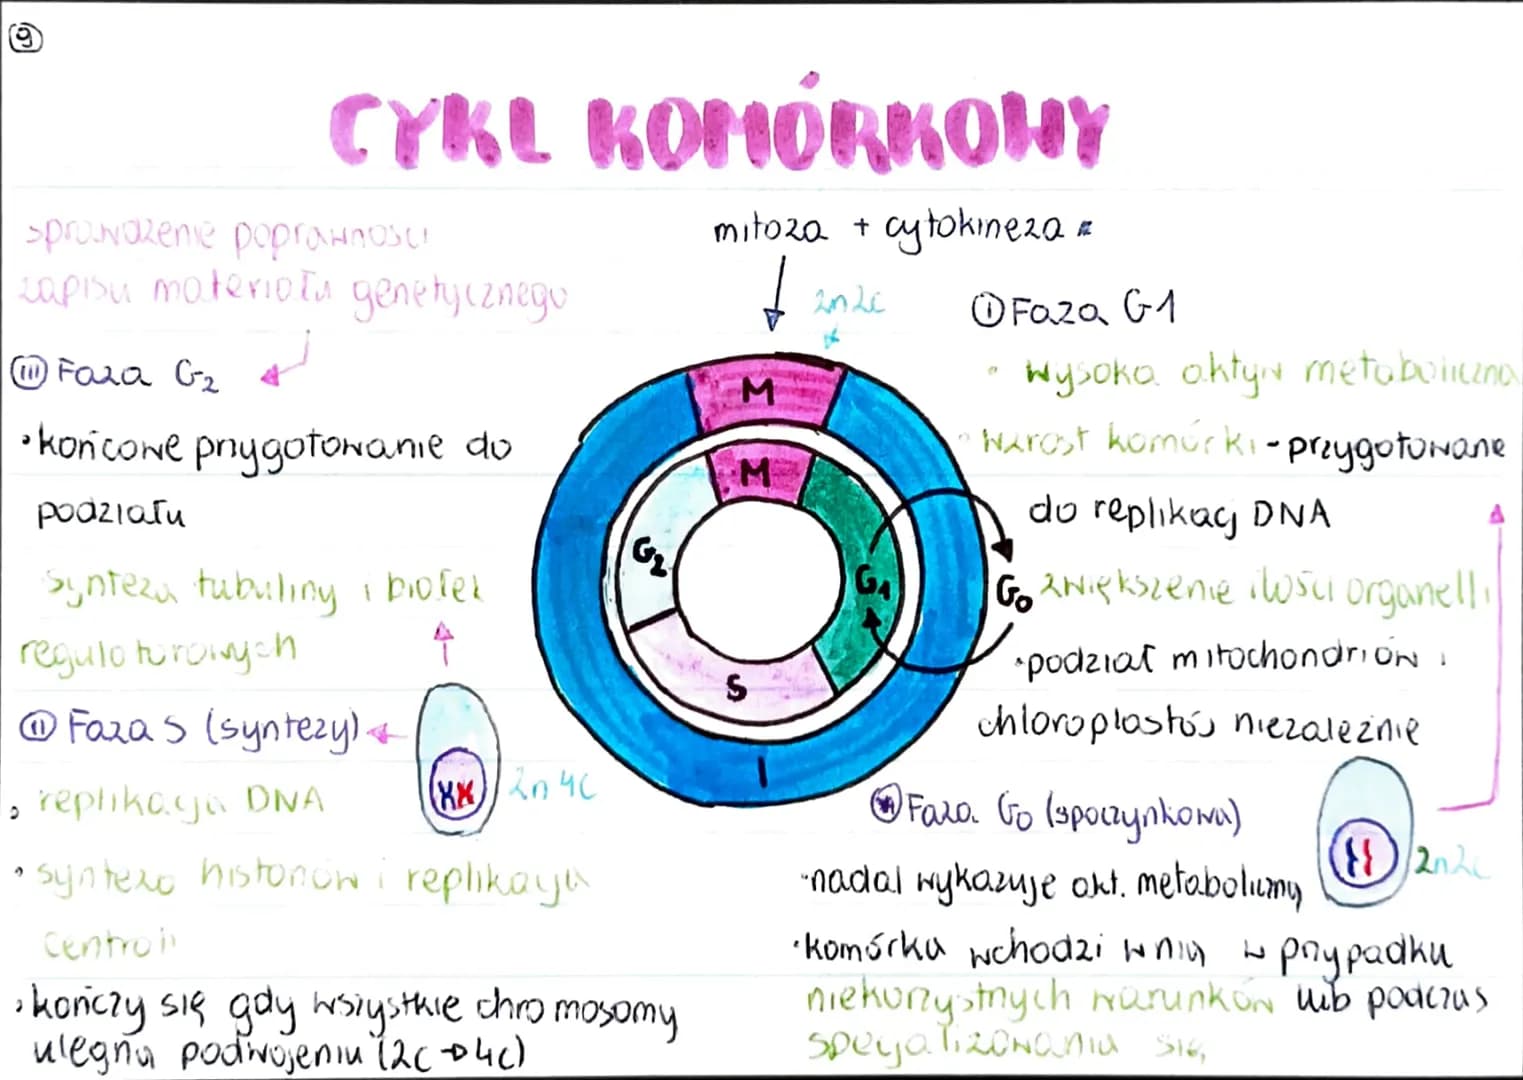 9
CYKL KOMÓRKOWY
sprawdzenie poprawności
zapisu materiału genetycznego
III Faza G2
• końcowe przygotowanie do
podziału
synteza tubuliny i białek
regulatorowych
II Faza S (syntezy)
• replikacja DNA
• synteza histonów i replikacja
centroli
• kończy się gdy wszystkie chromosomy
ulegną podwojeniu (2c → 4c)
2n 4c
mitoza + cytokineza
2n2c
M
M
G2
G1
S
I
G0
I Faza G1
• wysoka aktyw metaboliczna
• wzrost komórki - przygotowane
do replikacj DNA
zwiększenie ilości organelli
• podział mitochondriów i
chloroplastós niezależnie
Faza G0 (spoczynkowa)
2n2c
• nadal wykazuje akt. metaboliczną
• komórka wchodzi w nią w przypadku
niekorzystnych warunków lub podczas
specjalizowania się